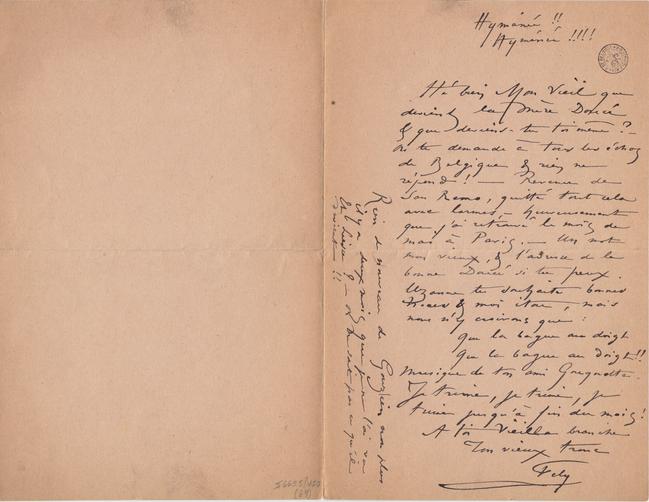 Hyménée !!
Hyménée !!!!
Hé bien Mon Vieil que
devient la mère Doncé
& que deviens-tu toi même ? -
On te demande à tous les échos
de Belgique & rien ne
répond ! — Revenu de
San Remo, quitté tout cela
avec larmes, — heureusement
que j'ai retrouvé le mois de
mai à Paris. — Un mot
mon vieux, & l'adresse de la
bonne si tu peux.
Uzanne te souhaite bonnes
& moi itou, mais
nous n'y croirons que :
que la bague au doigt
que la bague au doigt !!
Musique de ton ami
Je trime, je trime, je
trime jusqu'à fin du mois !
A toi Vieille branche
Ton vieux tronc
Fély
Rien de nouveau de non plus
il y a deux mois que je l'ai vu
Est-ce ? — On ne sait pas ce qu'il
devient !!
56655/120
(24)